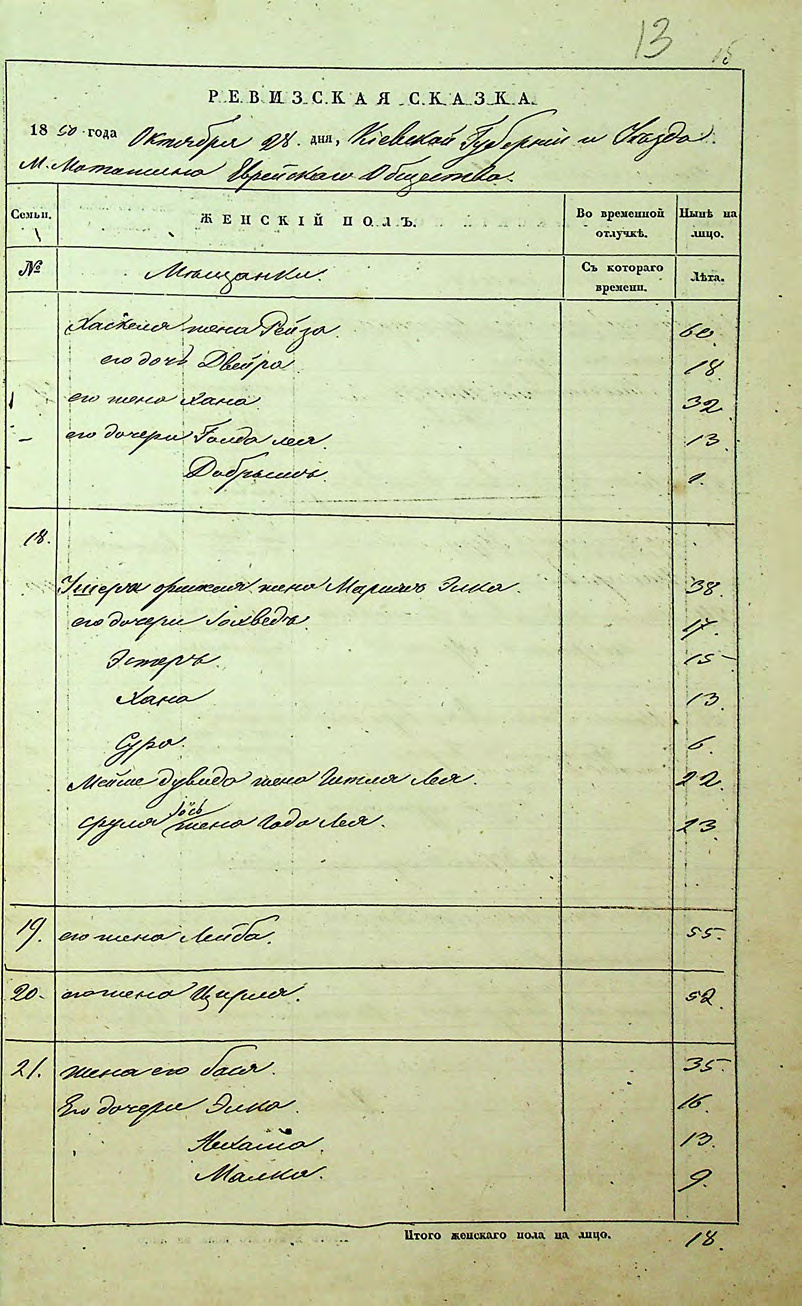 13
15
РЕВИЗСКАЯ СКАЗКА.
1850 года Октября 28. дня, Кіевской Губерніи и Уѣзда.
М. Мотышина Еврейскаго Общества.
Семьи. ЖЕНСКІЙ ПОЛЪ. Во временной отлучкѣ. Нынѣ на лицо.
№ Мѣщанки. Съ котораго времени. Лѣта.
Хаскеля жена Рейза. 60.
его дочь Двейра. 18.
его жена Хана. 32.
его дочери Голда Лея. 13.
18.
жена Эмка. 38.
его дочери Іохведъ. 17.
Эстеръ. 15
Хана 13.
Сура. 6.
Мойше Дувида жена Лея. 22.
Сруля Іось жена Лея. 23.
19. его жена Лейба. 55.
20. его жена Цирля. 52.
21. жена его Бася. 35.
Его дочери Элка. 16.
13.
Малка. 9.
Итого женскаго пола на лицо. 18.